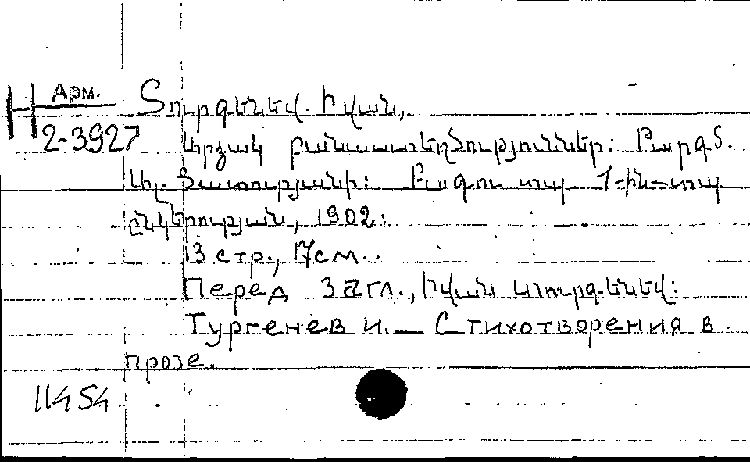 Арм. Տուրգենեվ. Իվան,
Н 2-3927 Արշակ բանաստեղծություններ: Թարգմ.
Ալ. Ծատուրյանի: Բագու տպ 1-ին տպ
ընկերության, 1902:
13 стр., 17см.
Перед загл., Իվան Տուրգենեվ:
Тургенев И. — Стихотворения в
прозе.
11454